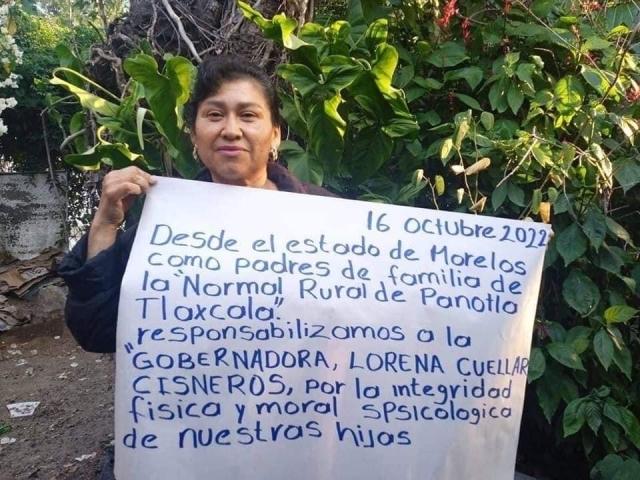 16 Octubre 2022
Desde el estado de Morelos
como padres de familia de
la "Normal Rural de Panotla
Tlaxcala".
responsabilizamos a la
"GOBERNADORA, LORENA CUELLAR
CISNEROS, por la integridad
fisica y moral SPsicologica
de nuestras hijas